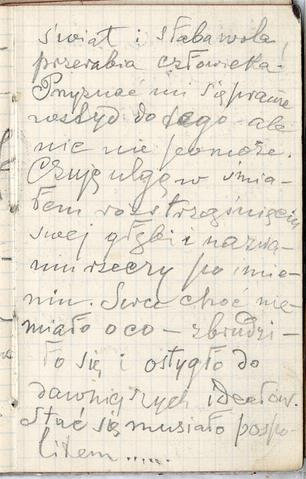 świat i słaba wola
przerabia człowieka!
Przyznać mi się prawie
wstyd do tego – ale
nic nie pomoże.
Czuję ulgę w śmia-
łem rozstrząśnięciu
swej głębi i nazwa-
niu rzeczy po imie-
niu. Serce choć nie
miało o co – zbrudzi –
ło się i ostygło do
dawniejszych ideałów.
Stać się musiało pospo-
litem.....